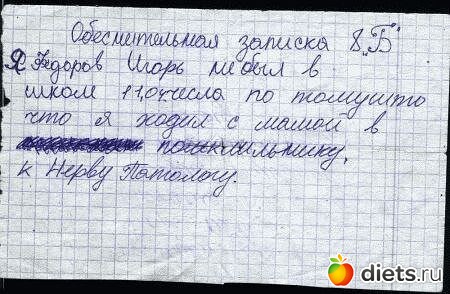 Обеснительная записка 8 „Б"
Я Федоров Игорь небыл в
школ 11,04числа по томушто
что я ходил с мамой в
к Нерву Патологу.
diets.ru